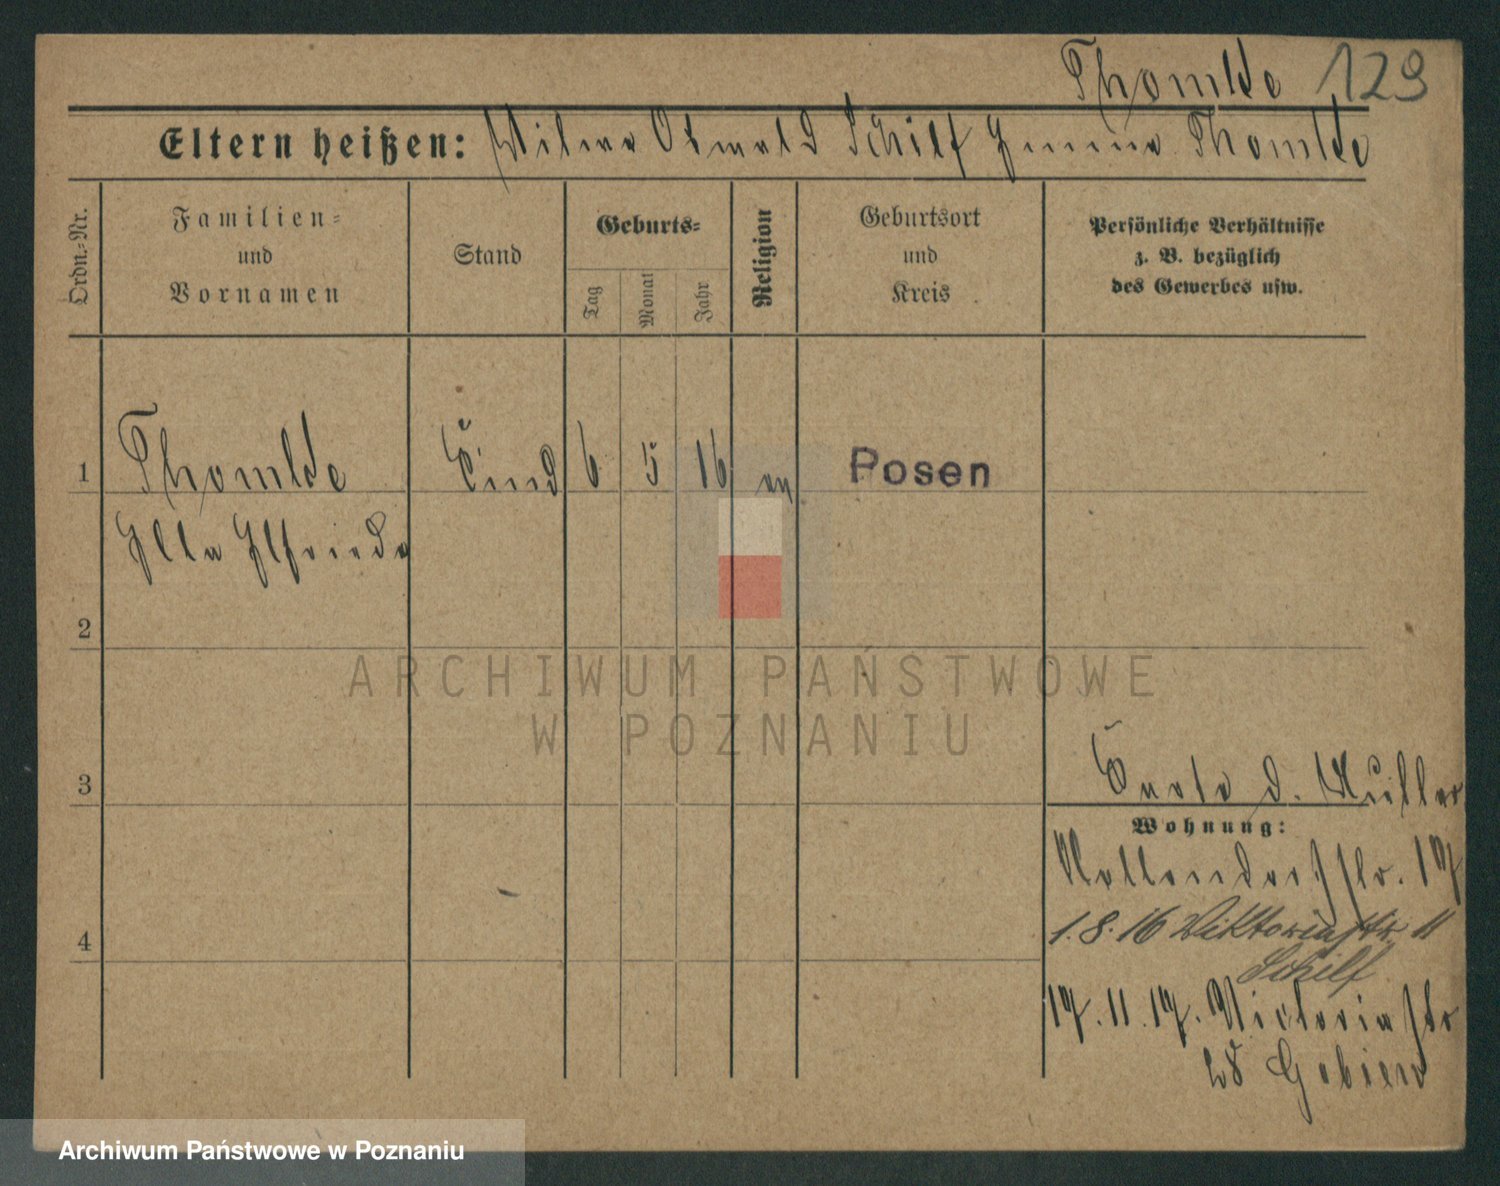 Thomke 129
Eltern heißen: Oswald Schilf Emma Thomke
Ordn.-Nr.
Familien-
und
Vornamen
Stand
Geburts-
Tag
Monat
Jahr
Religion
Geburtsort
und
Kreis
Persönliche Verhältnisse
z. B. bezüglich
des Gewerbes usw.
1 Thomke Kind 6 5 16 ev Posen
Ella Elfriede
2
ARCHIWUM PAŃSTWOWE
W POZNANIU
3 Karte d. Mutter
Wohnung:
Nollendorfstr. 17
1.8.16 Viktoriastr 11
Schilf
4
17.11.17. Victoriastr
Gebien
Archiwum Państwowe w Poznaniu